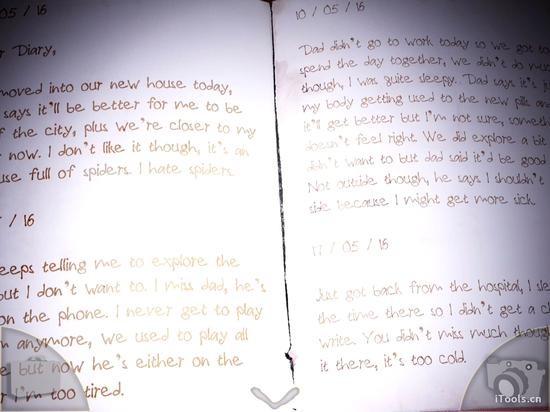 05 / 16
r Diary,
moved into our new house today,
says it'll be better for me to be
f the city, plus we're closer to my
r now. I don't like it though, it's an
use full of spiders. I hate spiders.
/ 16
eeps telling me to explore the
but I don't want to. I miss dad, he's
on the phone. I never get to play
m anymore, we used to play all
e but now he's either on the
r I'm too tired.
10 / 05 / 16
Dad didn't go to work today so we got to
spend the day together, we didn't do much
though, I was quite sleepy. Dad says it's ju
my body getting used to the new pills and
it'll get better but I'm not sure, someth
doesn't feel right. We did explore a bit
didn't want to but dad said it'd be good
Not outside though, he says I shouldn't
side because I might get more sick.
17 / 05 / 16
Just got back from the hospital, I sle
the time there so I didn't get a c
write. You didn't miss much though
it there, it's too cold.
iTools.cn